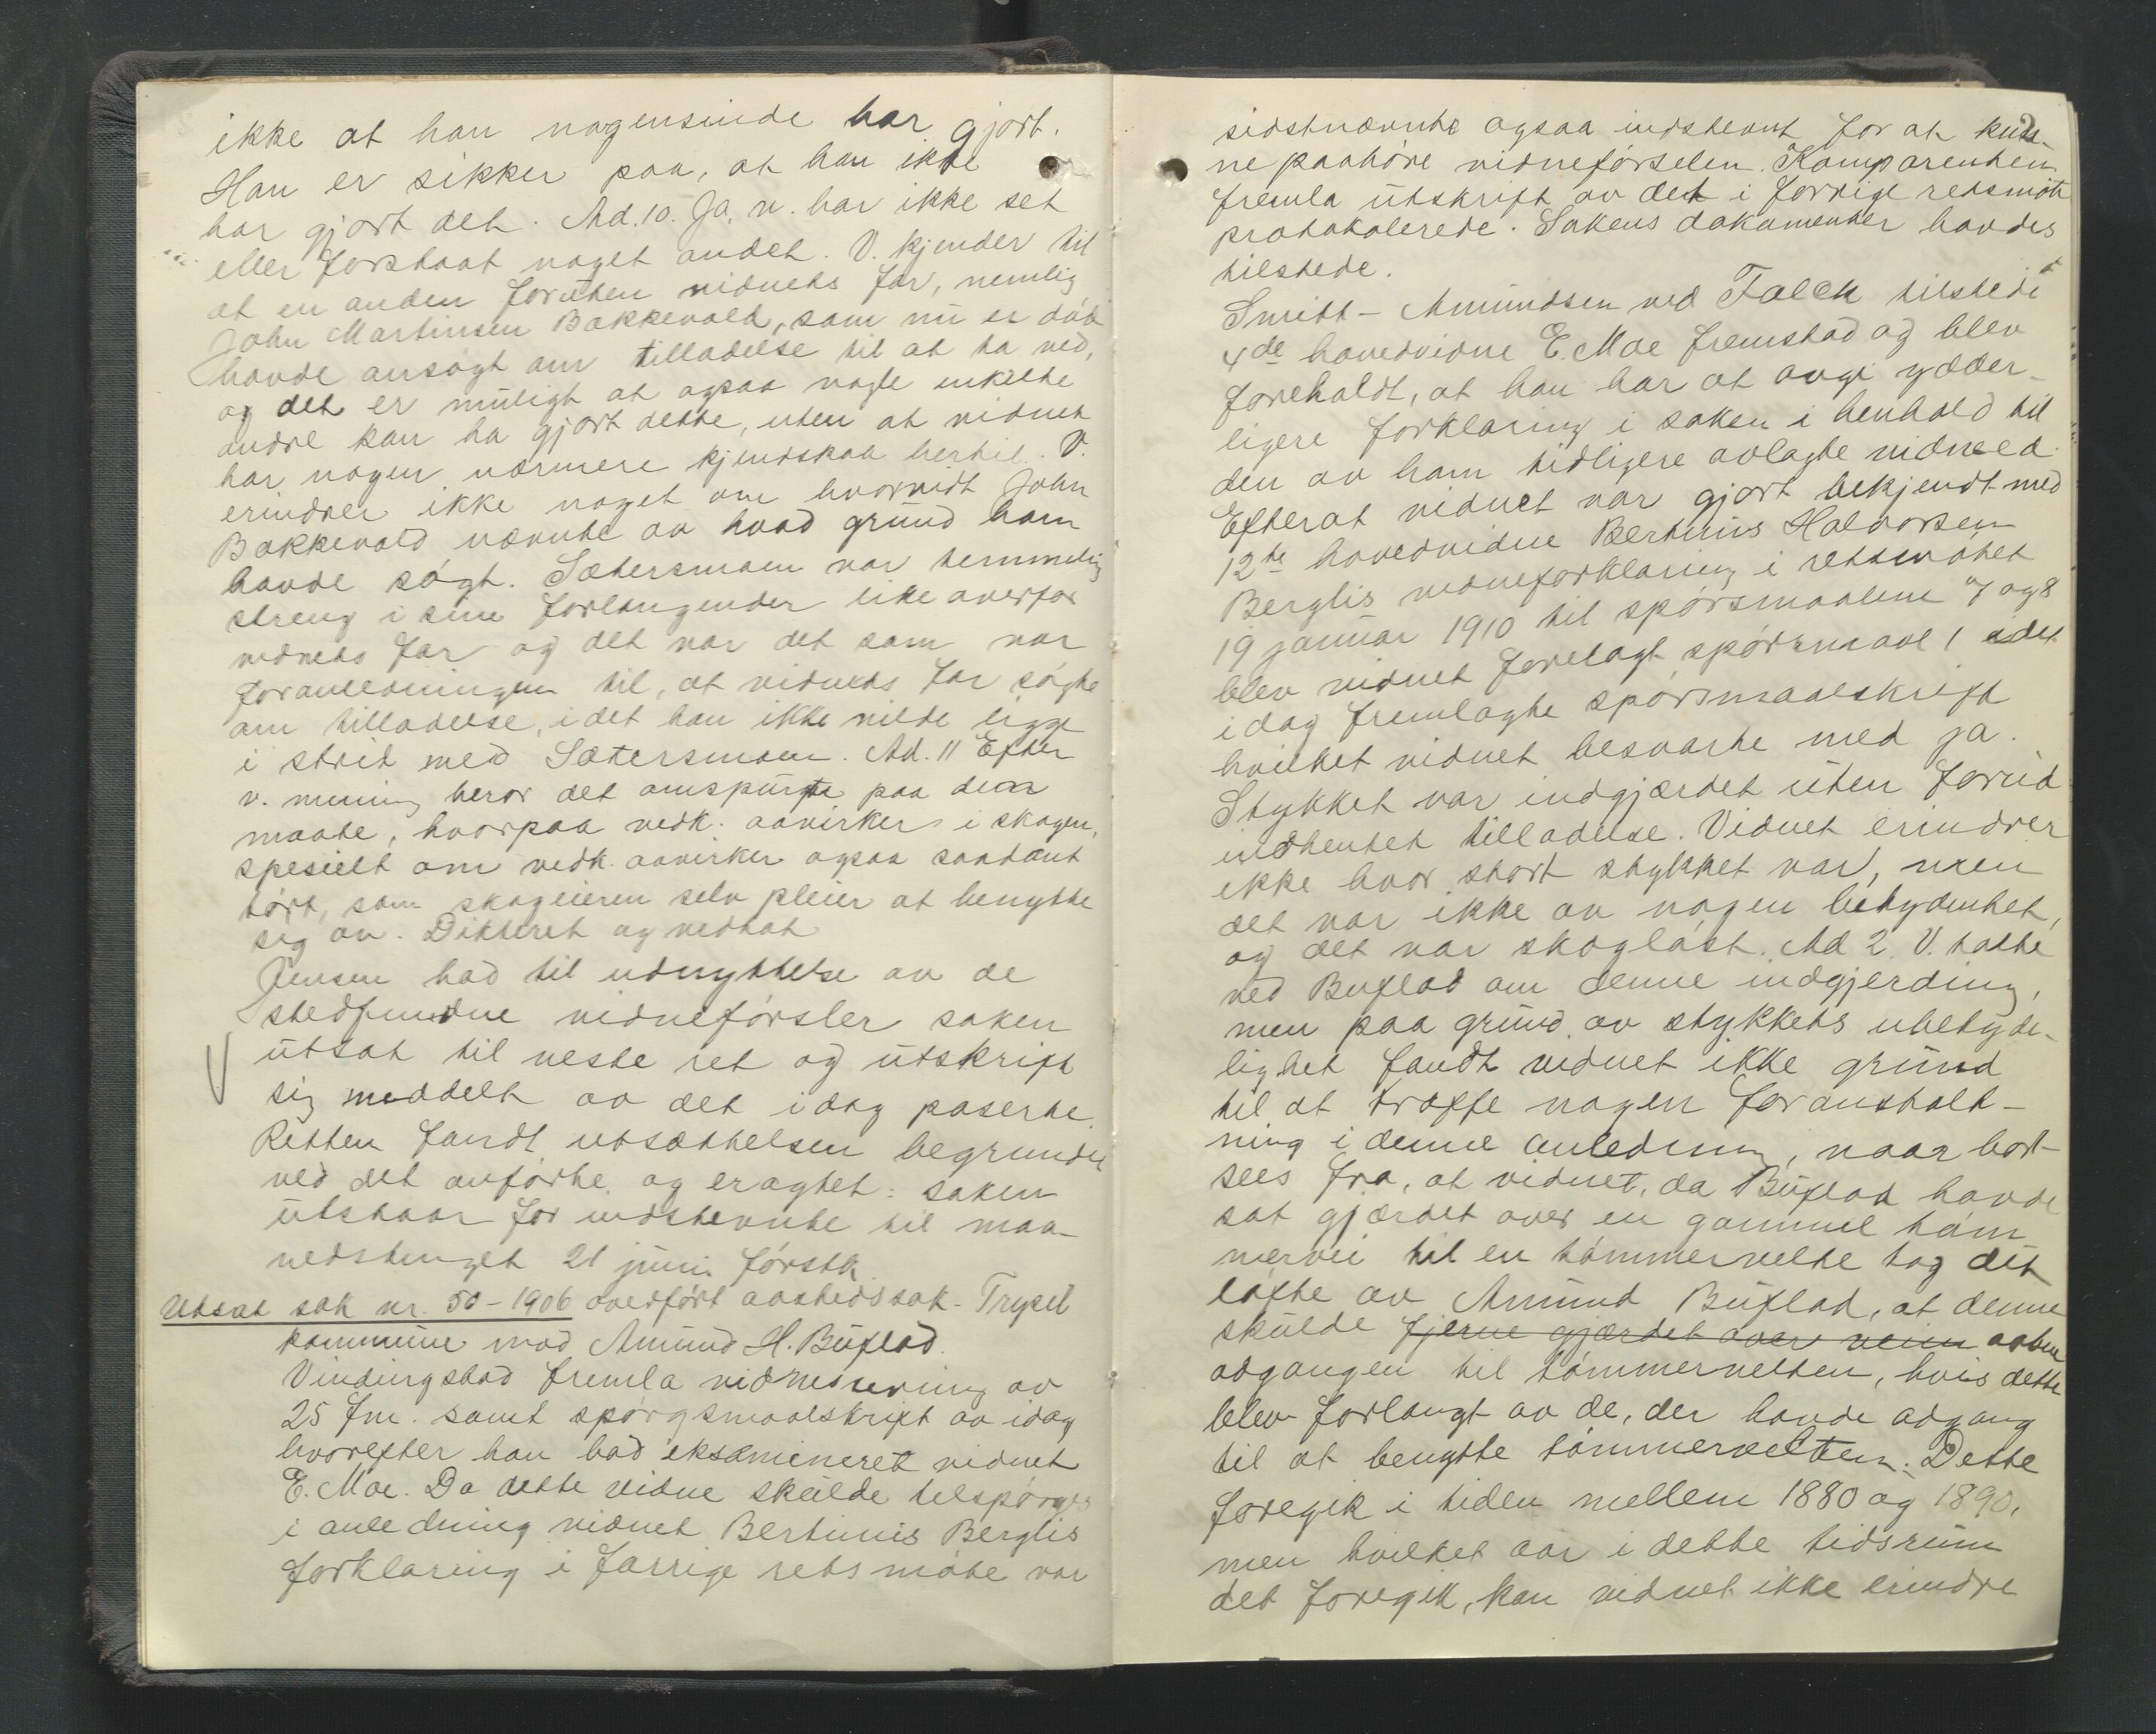 ikke at han nogensinde har gjort.
Han er sikker paa, at han ikke
har gjort det. Ad. 10. Ja, v. har ikke set
eller forstaat noget andet. V. kjender til
at en anden foruten vidnets far, nemlig
John Martinsen Bakkevold, som nu er död
havde ansögt om tilladelse til at ta ved,
og det er muligt at ogsaa nogle enkelte
andre kan ha gjort dette, uten at vidnet
har nogen nærmere kjendskap hertil. V.
erindrer ikke noget om hvorvidt John
Bakkevold nævnte av hvad grund ham
havde sögt. Sætersmoen var temmelig
streng i sine forlangender like overfor
vidnets far og det var det som var
foranledningen til, at vidnets far sögte
om tilladelse, idet han ikke vilde ligge
i strid med Sætersmoen. Ad. 11 Efter
v. mening beror det omspurgte paa den
maate, hvorpaa vedk. avvirker i skogen,
spesielt om vedk. avvirker ogsaa saadant
tört, som skogeieren selv pleier at benytte
sig av. Dikteret og vedtat
Jensen bad til udnyttelse av de
stedfundne vidneförsler saken
utsat til neste ret og utskrift
sig meddelt av det idag paserte.
Retten fandt utsættelsen begrundet
ved det anförte og eragtet: saken
utstaar for indstevnte til maa-
nedstinget 21 juni förstk.
Utsat sak nr. 50-1906 overfört aastedssak. Trysil
kommune mod Amund H. Buflod.
Vindingstad fremla vidnestevning av
25 f.m. samt spörgsmaalskrift av idag
hvorefter han bad eksamineret vidnet
E. Moe. Da dette vidne skulde tilspörges
i anledning vidnet Bertinius Berglis
forklaring i forrige retsmöte var
2
sidstnævnte ogsaa indstevnt for at kun-
ne paahöre vidneförselen. Komparenten
fremla utskrift av det i forrige retsmöte
protokolerede. Sakens dokumenter havdes
tilstede.
Smitt-Amundsen ved Falck tilstede
4de hovedvidne E. Moe fremstod og blev
foreholdt, at han har at avgi ydder-
ligere forklaring i saken i henhold til
den av ham tidligere avlagte vidneed.
Efterat vidnet var gjort bekjendt med
12te hovedvidne Bertinius Halvorsen
Berglis vidneforklaring i retsmötet
19 januar 1910 til spörsmaalene 7 og 8
blev vidnet forelagt spörsmaal 1 i det
idag fremlagte spörsmaalskrift
hvilket vidnet besvarte med ja.
Stykket var indgjærdet uten forud
indhentet tilladelse. Vidnet erindrer
ikke hvor stort stykket var, men
det var ikke av nogen betydenhet,
og det var skogløst. Ad 2. V. talte
ved Buflod om denne indgjerding,
men paa grund av stykkets ubetyde-
lighet fandt vidnet ikke grund
til at træffe nogen foranstalt-
ning i denne anledning, naar bort-
sees fra, at vidnet, da Buflod havde
sat gjærdet over en gammel töm
mervei til en tömmervelte tog det
löfte av Amund Buflod, at denne
skulde fjerne gjærdet over veien aabne
adgangen til tömmervelten, hvis dette
blev forlangt av de, der havde adgang
til at benytte tömmervelten. Dette
foregik i tiden mellem 1880 og 1890,
men hvilket aar i dette tidsrum
det foregik, kan vidnet ikke erindre